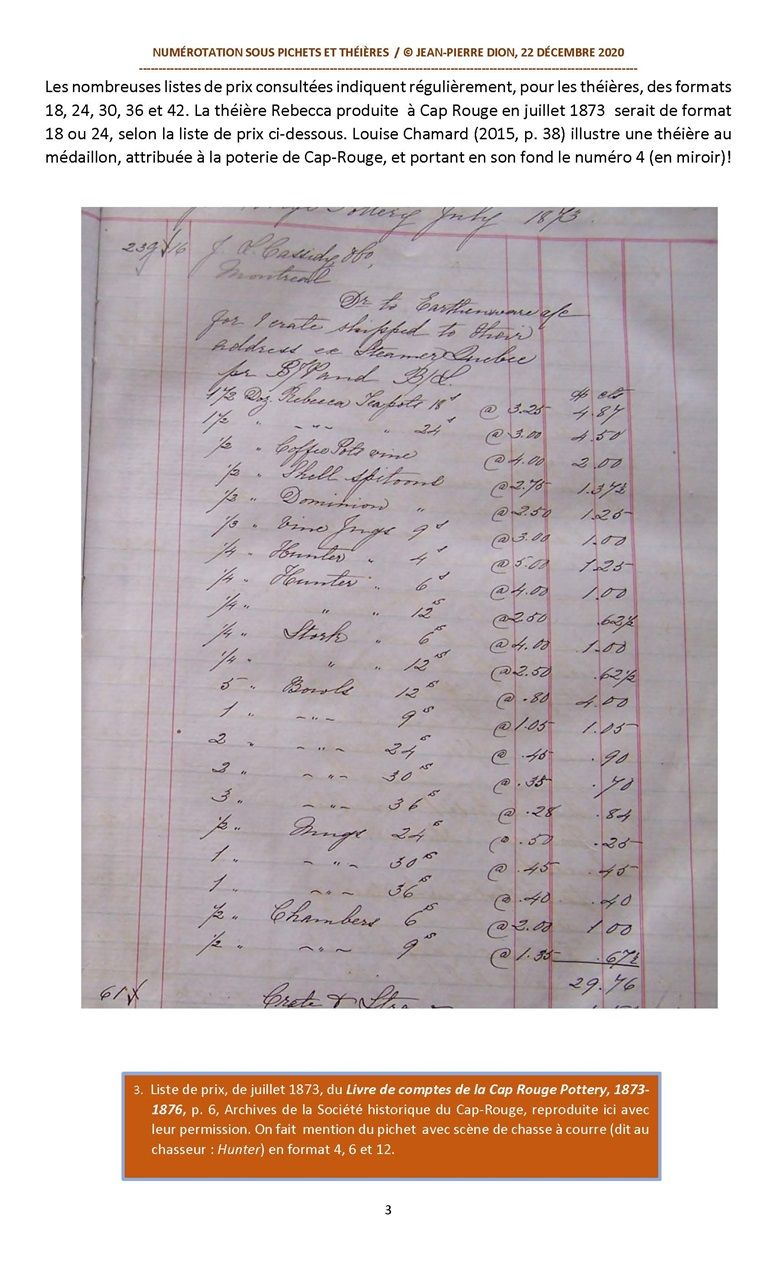 NUMÉROTATION SOUS PICHETS ET THÉIÈRES / © JEAN-PIERRE DION, 22 DÉCEMBRE 2020
Les nombreuses listes de prix consultées indiquent régulièrement, pour les théières, des formats
18, 24, 30, 36 et 42. La théière Rebecca produite à Cap Rouge en juillet 1873 serait de format
18 ou 24, selon la liste de prix ci-dessous. Louise Chamard (2015, p. 38) illustre une théière au
médaillon, attribuée à la poterie de Cap-Rouge, et portant en son fond le numéro 4 (en miroir)!
Pottery July 1873.
239 16 J. L. Cassidy &Co,
Montreal
Dr to Earthenware a/c
for 1 crate shipped to their
address ex Steamer Quebec
pr B/P and B/L. $ cts
1 1/2 Doz. Rebecca Teapots 18s @ 3.25 4.87
1 1/2 " -"- " 24s @ 3.00 4.50
1/2 " Coffee Pots vine @ 4.00 2.00
1/2 " Shell spitoons @ 2.75 1.37½
1/2 " Dominion " @ 2.50 1.25
1/3 " Vine Jugs 9s @ 3.00 1.00
1/4 " Hunter " 4s @ 5.00 1.25
1/4 " Hunter " 6s @ 4.00 1.00
1/4 " " " 12s @ 2.50 .62½
1/4 " Stork " 6s @ 4.00 1.00
1/4 " " " 12s @ 2.50 .62½
5 " Bowls 12s @ .80 4.00
1 " -"- 9s @ 1.05 1.05
2 " -"- 24s @ .45 .90
2 " -"- 30s @ .35 .70
3 " -"- 36s @ .28 .84
1/2 " Mugs 24s @ .50 .25
1 " -"- 30s @ .45 .45
1 " -"- 36s @ .40 .40
1/2 " Chambers 6s @ 2.00 1.00
1/2 " -"- 9s @ 1.35 .67½
29.76
61 Crate & Straw
3. Liste de prix, de juillet 1873, du Livre de comptes de la Cap Rouge Pottery, 1873-
1876, p. 6, Archives de la Société historique du Cap-Rouge, reproduite ici avec
leur permission. On fait mention du pichet avec scène de chasse à courre (dit au
chasseur : Hunter) en format 4, 6 et 12.
3